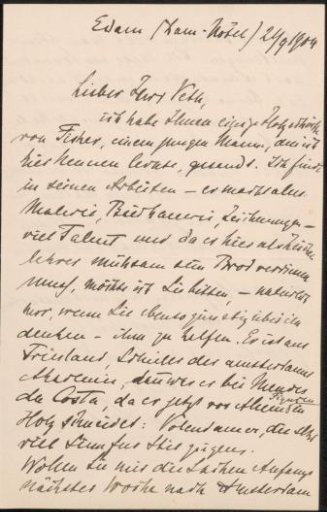 Edam (Dam-Hotel) 24/9 1904
Lieber Herr Veth,
ich habe Ihnen einige Holzschnitte
von Fisher, einem jungen Mann, den ich
hier kennen lernte, gesandt. Ich finde
in seinen Arbeiten – er macht alles
Malerei, Bildhauerei, Zeichnungen –
viel Talent und da er hier als Zeichen
lehrer mühsam sein Brod verdienen
muss, möchte ich Sie bitten, – natürlich
nur, wenn Sie ebenso günstig über ihn
denken – ihm zu helfen. Er ist aus
Friesland, Schüler der amsterdamer
Akademie, dann war er bei Mendes
da Costa, da er jetzt vor allem Figuren in
Holz schneidet: Volendamer, die
viel
Wollen Sie mir die Sachen Anfangs
nächster Woche nach Amsterdam